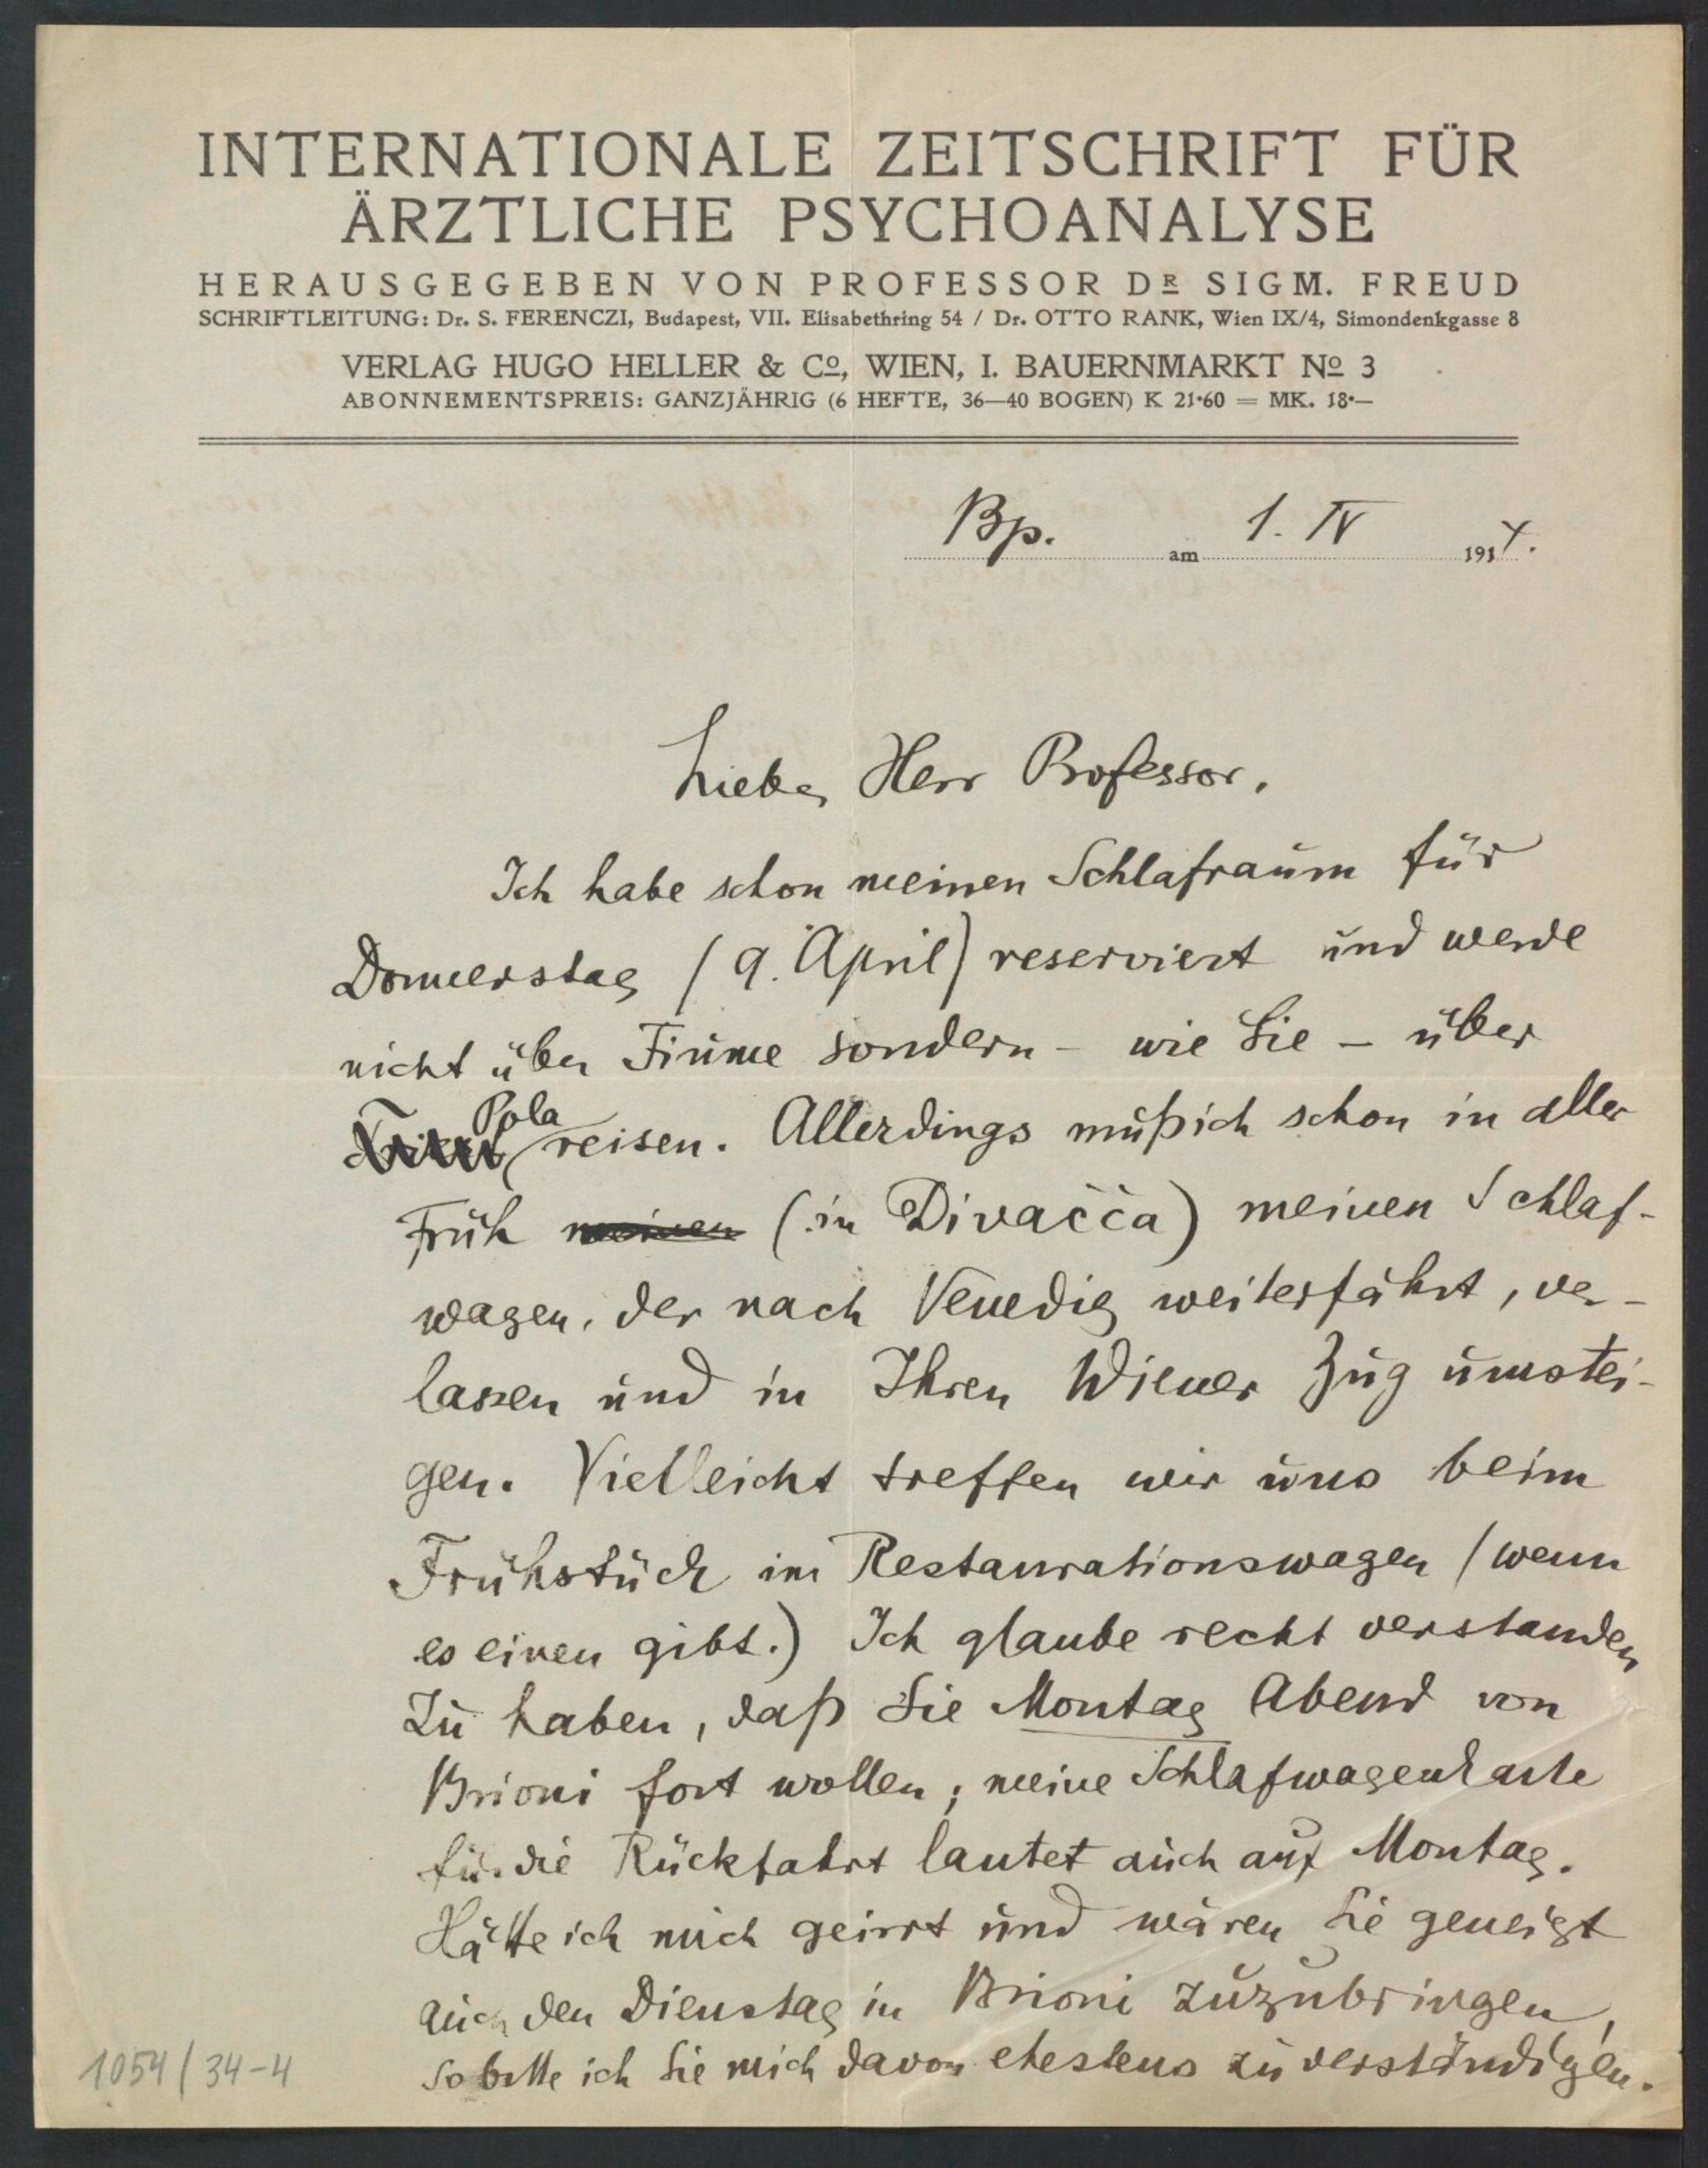 INTERNATIONALE ZEITSCHRIFT FÜR
ÄRZTLICHE PSYCHOANALYSE
HERAUSGEGEBEN VON PROFESSOR DR SIGM. FREUD
SCHRIFTLEITUNG: Dr. S. FERENCZI, Budapest, VII. Elisabethring 54 / Dr. OTTO RANK, Wien IX/4, Simondenkgasse 8
VERLAG HUGO HELLER & Co, WIEN, I. BAUERNMARKT No 3
ABONNEMENTSPREIS: GANZJÄHRIG (6 HEFTE, 36—40 BOGEN) K 21·60 = MK. 18·—
Bp. am 1. IV 1914.
Lieber Herr Professor,
Ich habe schon meinen Schlafraum für
Donnerstag (9. April) reserviert und werde
nicht über Fiume sondern – wie Sie – über
Pola reisen. Allerdings muß ich schon in aller
Früh meinen (in Divačča) meinen Schlaf-
wagen, der nach Venedig weiterfährt, ver-
lassen und in Ihren Wiener Zug umstei-
gen. Vielleicht treffen wir uns beim
Frühstück im Restaurationswagen (wenn
es einen gibt.) Ich glaube recht verstanden
zu haben, daß Sie Montag Abend von
Brioni fort wollen; meine Schlafwagenkarte
für die Rückfahrt lautet auch auf Montag.
Hätte ich mich geirrt und wären Sie geneigt
auch den Dienstag in Brioni zuzubringen,
so bitte ich Sie mich davon ehestens zu verständigen.
1054/34-4